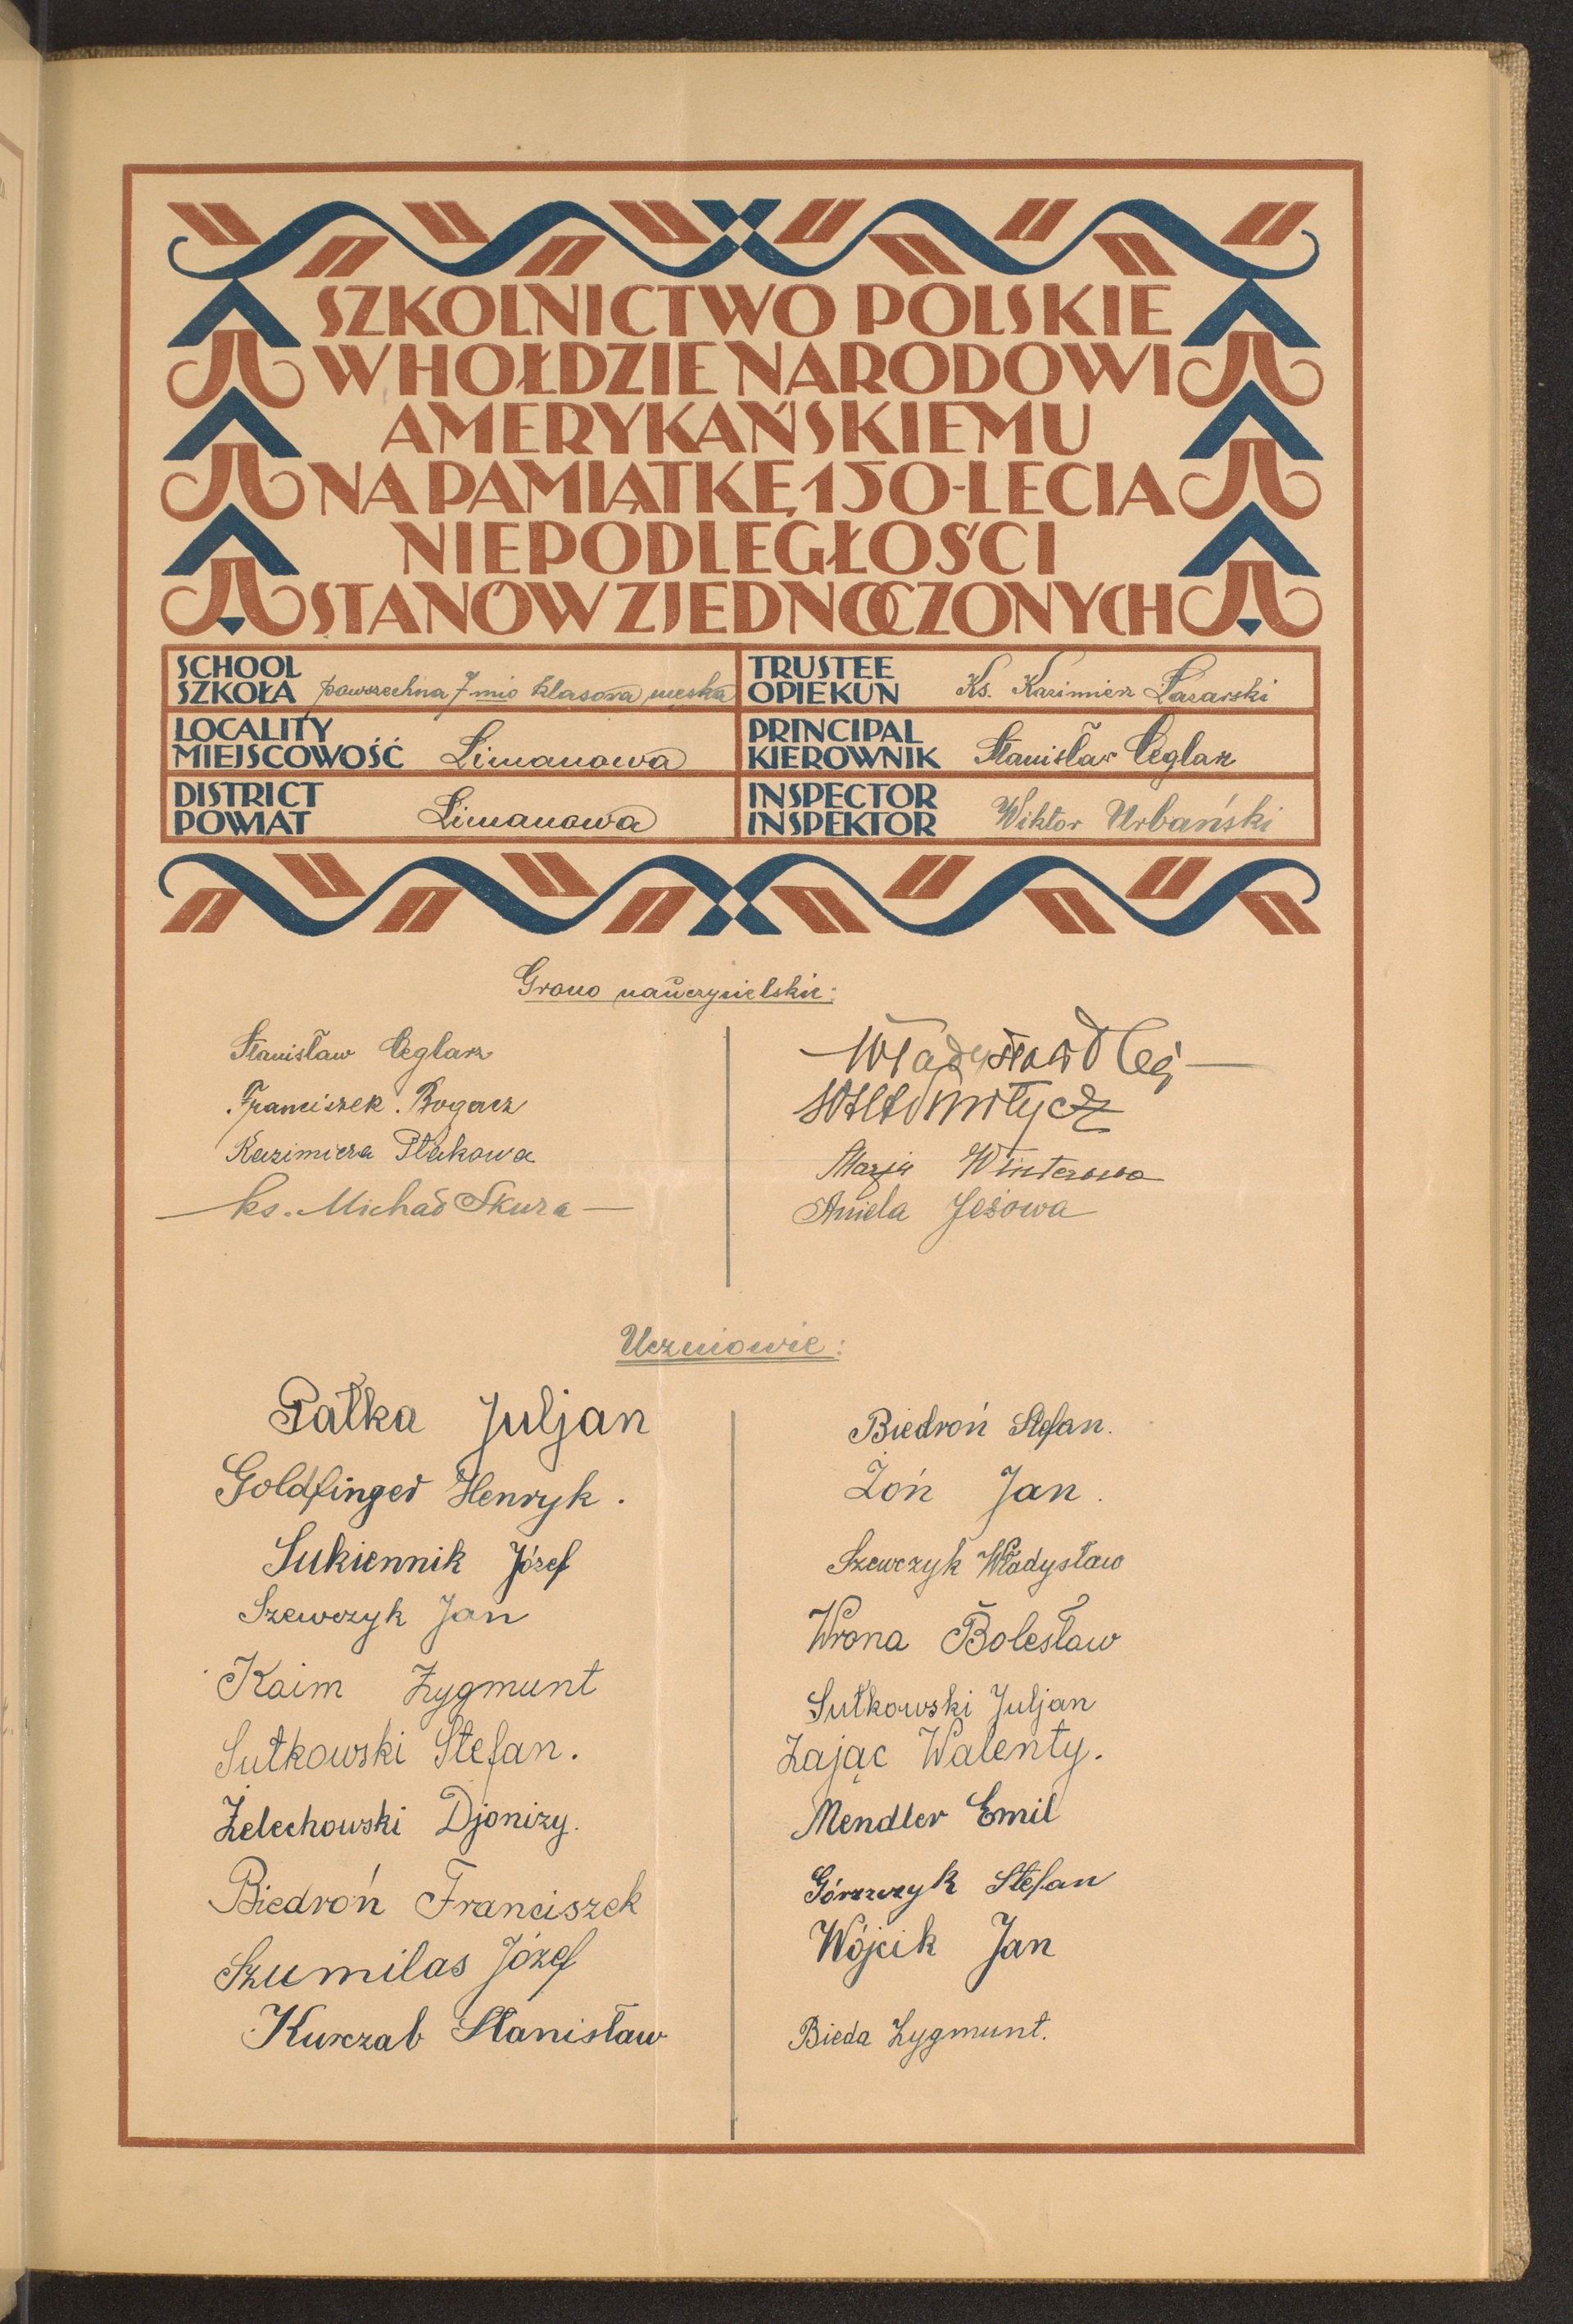 SZKOLNICTWO POLSKIE
W HOŁDZIE NARODOWI
AMERYKAŃSKIEMU
NA PAMIĄTKĘ 150-LECIA
NIEPODLEGŁOŚCI
STANÓW ZJEDNOCZONYCH
SCHOOL
SZKOŁA powszechna 7 mio klasowa męska
TRUSTEE
OPIEKUN Ks. Kazimierz Łazarski
LOCALITY
MIEJSCOWOŚĆ Limanowa
PRINCIPAL
KIEROWNIK Stanisław Ceglarz
DISTRICT
POWIAT Limanowa
INSPECTOR
INSPEKTOR Wiktor Urbański
Grono nauczycielskie:
Stanisław Ceglarz
Franciszek Bogacz
Kazimiera Ptakowa
ks. Michał Skura
Władysław
Marja Winterowa
Aniela Jeżowa
Uczniowie:
Pałka Juljan
Goldfinger Henryk.
Sukiennik Józef
Szewczyk Jan
Kaim Zygmunt
Sułkowski Stefan.
Żelechowski Djonizy.
Biedroń Franciszek
Szumilas Józef
Kurczab Stanisław
Biedroń Stefan.
Żoń Jan.
Szewczyk Władysław
Wrona Bolesław
Sułkowski Juljan
Zając Walenty.
Mendler Emil
Górszczyk Stefan
Wójcik Jan
Bieda Zygmunt.